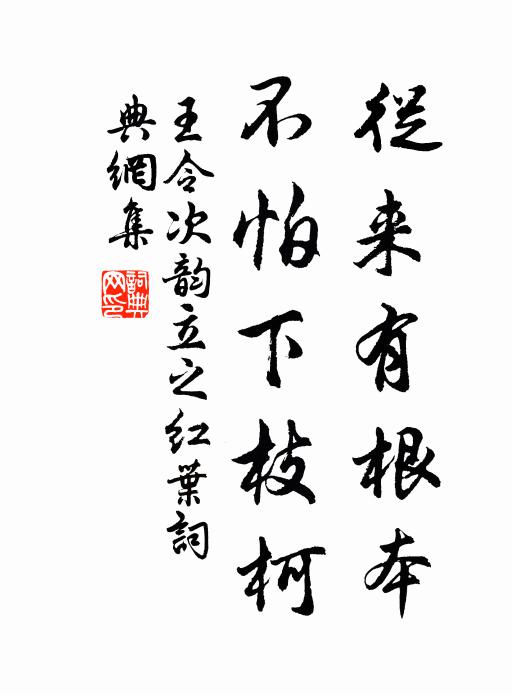 從来有根本
不怕下枝柯
王令次韵立之红葉詞
典網集
詞典
网印